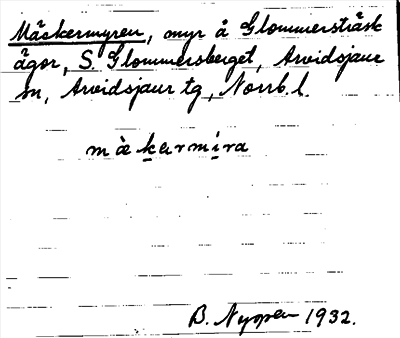 Mäckermyren, myr å Glommersträsk
ägor, S. Glommersberget, Arvidsjaur
sn, Arvidsjaur tg, Norrb. l.
màkɐrmira
B. Nyman 1932.